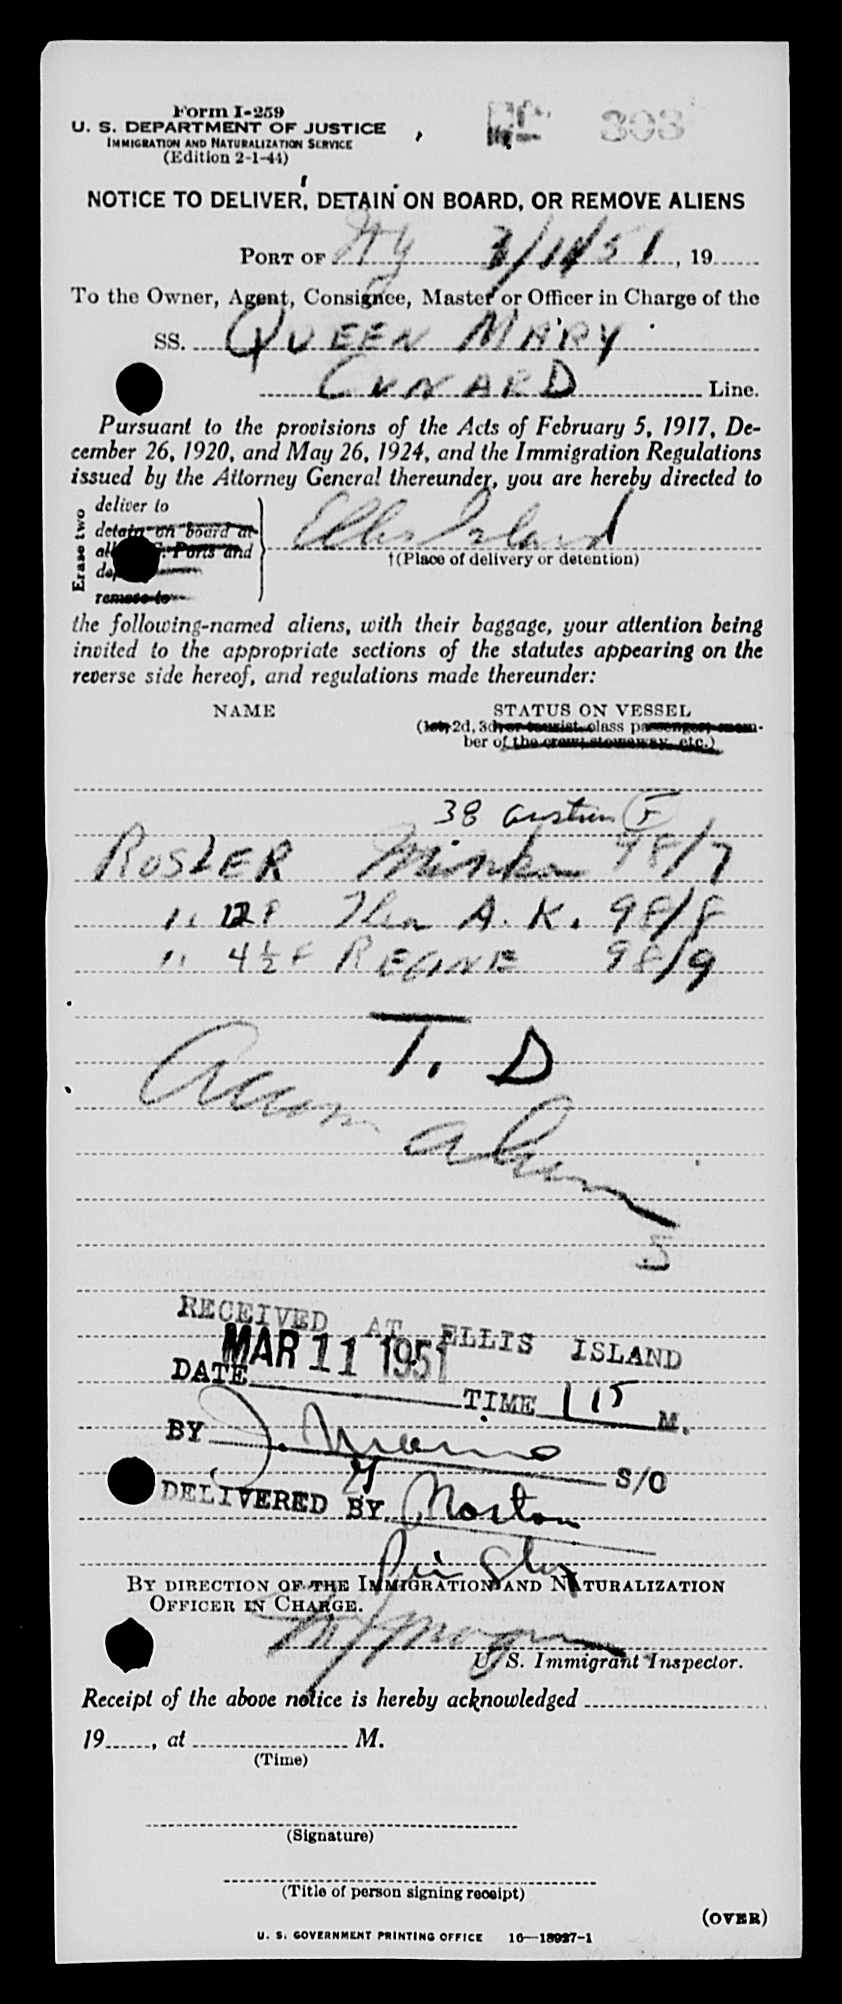 Form I-259
U. S. DEPARTMENT OF JUSTICE
IMMIGRATION AND NATURALIZATION SERVICE
(Edition 2-1-44)
303
NOTICE TO DELIVER, DETAIN ON BOARD, OR REMOVE ALIENS
PORT OF NY 3/11/51, 19
To the Owner, Agent, Consignee, Master or Officer in Charge of the
SS. QUEEN MARY
CUNARD Line.
Pursuant to the provisions of the Acts of February 5, 1917, De-
cember 26, 1920, and May 26, 1924, and the Immigration Regulations
issued by the Attorney General thereunder, you are hereby directed to
Erase two
deliver to
detain on board at
Ports and
remove to
Ellis Island
†(Place of delivery or detention)
the following-named aliens, with their baggage, your attention being
invited to the appropriate sections of the statutes appearing on the
reverse side hereof, and regulations made thereunder:
NAME STATUS ON VESSEL
(1st, 2d, 3d, or tourist class passenger, mem-
ber of the crew, stowaway, etc.)
38 F
ROSLER Minka 98/7
" 12 F A. K. 98/8
" 4½ F REGINE 98/9
T. D
5
RECEIVED AT ELLIS ISLAND
DATE MAR 11 1951 TIME 1 15 M.
BY J. S/O
DELIVERED BY Norton
BY DIRECTION OF THE IMMIGRATION AND NATURALIZATION
OFFICER IN CHARGE.
U. S. Immigrant Inspector.
Receipt of the above notice is hereby acknowledged
19, at M.
(Time)
(Signature)
(Title of person signing receipt)
(OVER)
U. S. GOVERNMENT PRINTING OFFICE 16—18927-1